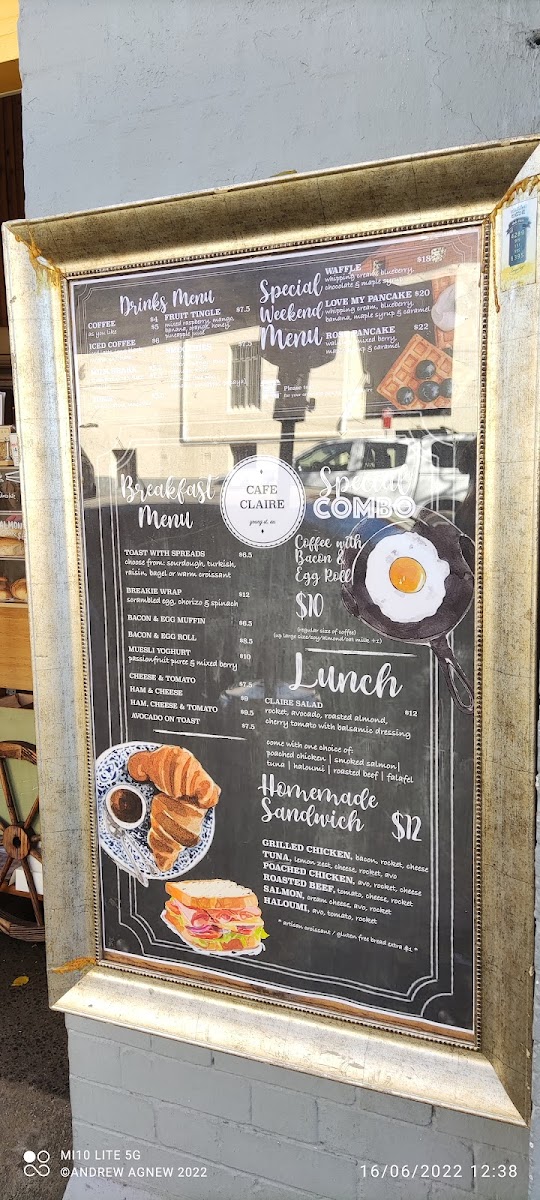 Drinks Menu
COFFEE $4
as you like $5
ICED COFFEE $6
FRUIT TINGLE $7.5
mixed raspberry, mango,
banana, orange, honey,
pineapple juice
Special
Weekend
Menu
WAFFLE $18
whipping cream, blueberry,
chocolate & maple
LOVE MY PANCAKE $20
whipping cream, blueberry,
banana, maple syrup & caramel
PANCAKE $22
mixed berry,
& caramel
Please
Breakfast
Menu
CAFE
CLAIRE
Special
COMBO
TOAST WITH SPREADS $6.5
choose from: sourdough, turkish,
raisin, bagel or warm croissant
BREAKIE WRAP $12
scrambled egg, chorizo & spinach
BACON & EGG MUFFIN $6.5
BACON & EGG ROLL $8.5
MUESLI YOGHURT $10
passionfruit puree & mixed berry
CHEESE & TOMATO $7.5
HAM & CHEESE $9
HAM, CHEESE & TOMATO $9.5
AVOCADO ON TOAST $7.5
Coffee with
Bacon &
Egg Roll
$10
(regular size of coffee)
(up large size/soy/almond/oat milk +1)
Lunch
CLAIRE SALAD $12
rocket, avocado, roasted almond,
cherry tomato with balsamic dressing
come with one choice of:
poached chicken | smoked salmon |
tuna | haloumi | roasted beef | falafel
Homemade
Sandwich $12
GRILLED CHICKEN, bacon, rocket, cheese
TUNA, lemon zest, cheese, rocket, avo
POACHED CHICKEN, avo, rocket, cheese
ROASTED BEEF, tomato, cheese, rocket
SALMON, cream cheese, avo, rocket
HALOUMI, avo, tomato, rocket
* artisan croissant / gluten free bread extra $1 *
MI10 LITE 5G
©ANDREW AGNEW 2022
16/06/2022 12:38